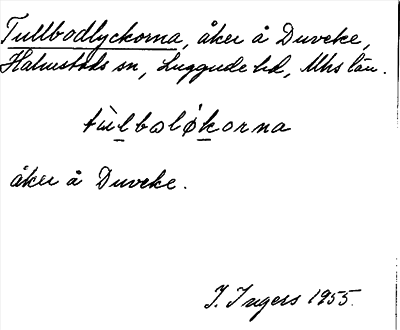 Tullbodlyckorna, åker å Duveke,
Halmstads sn, Luggude hd, Mhs län.
tùlbolókorna
åker å Duveke.
I. Ingers 1955.